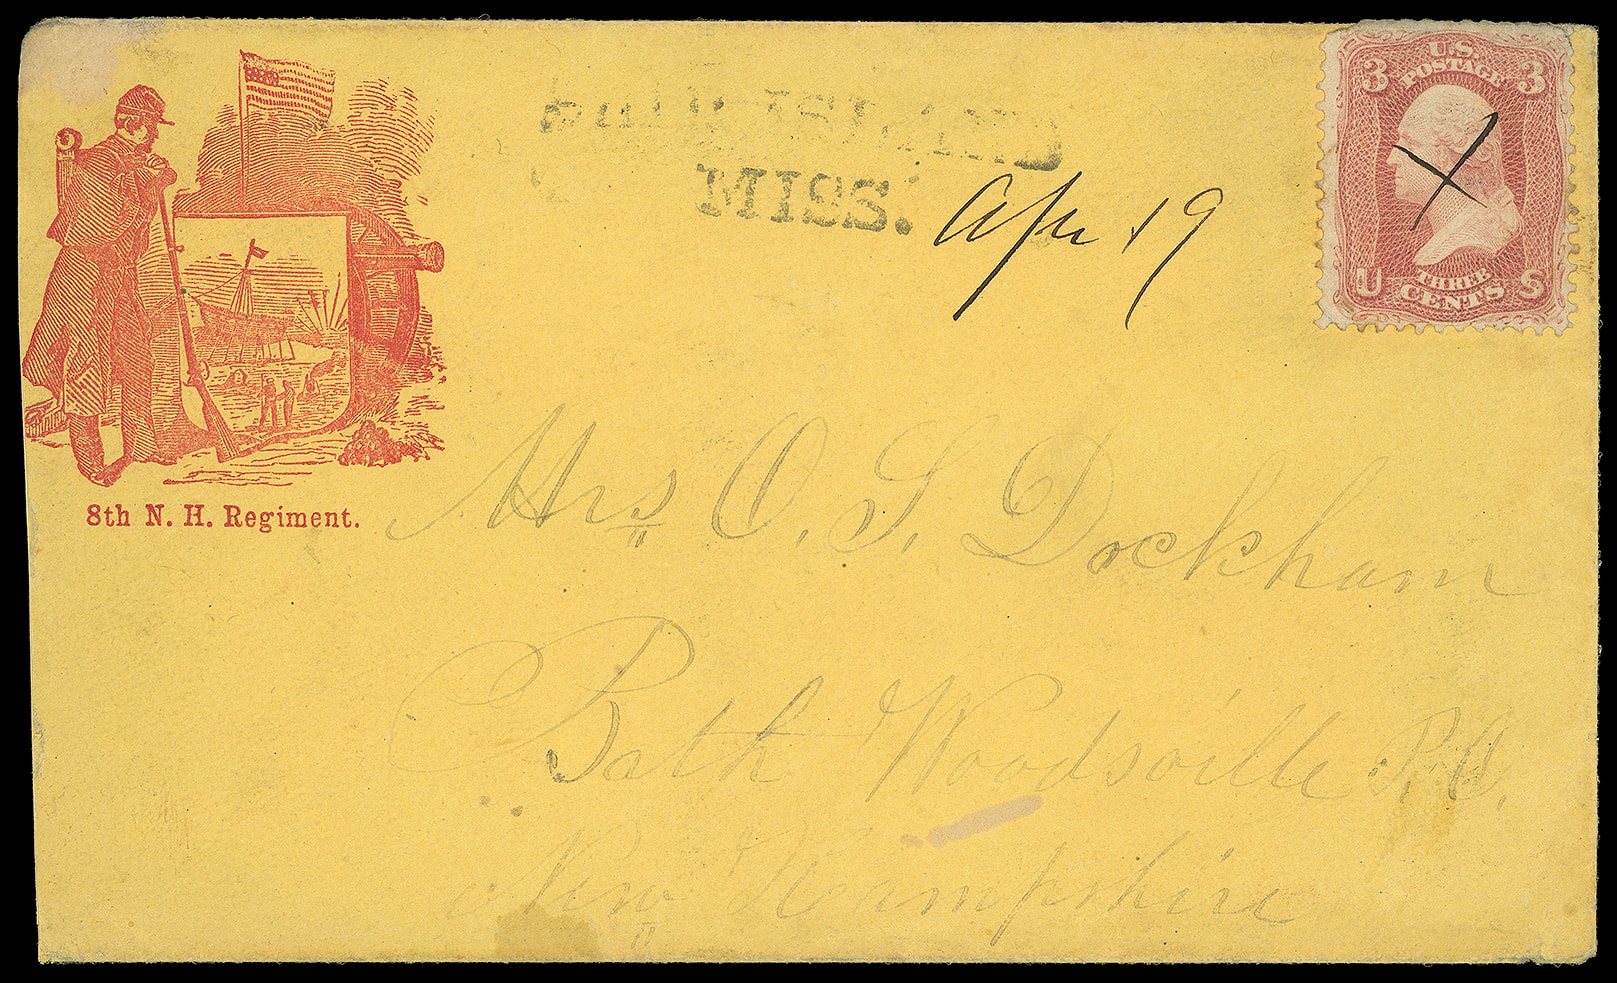 SHIP ISLAND
MISS.
Apr 19
3 U.S. 3
POSTAGE
THREE
U CENTS S
8th N. H. Regiment.
Mrs O. S. Dockham
Bath Woodsville P.O.
New Hampshire